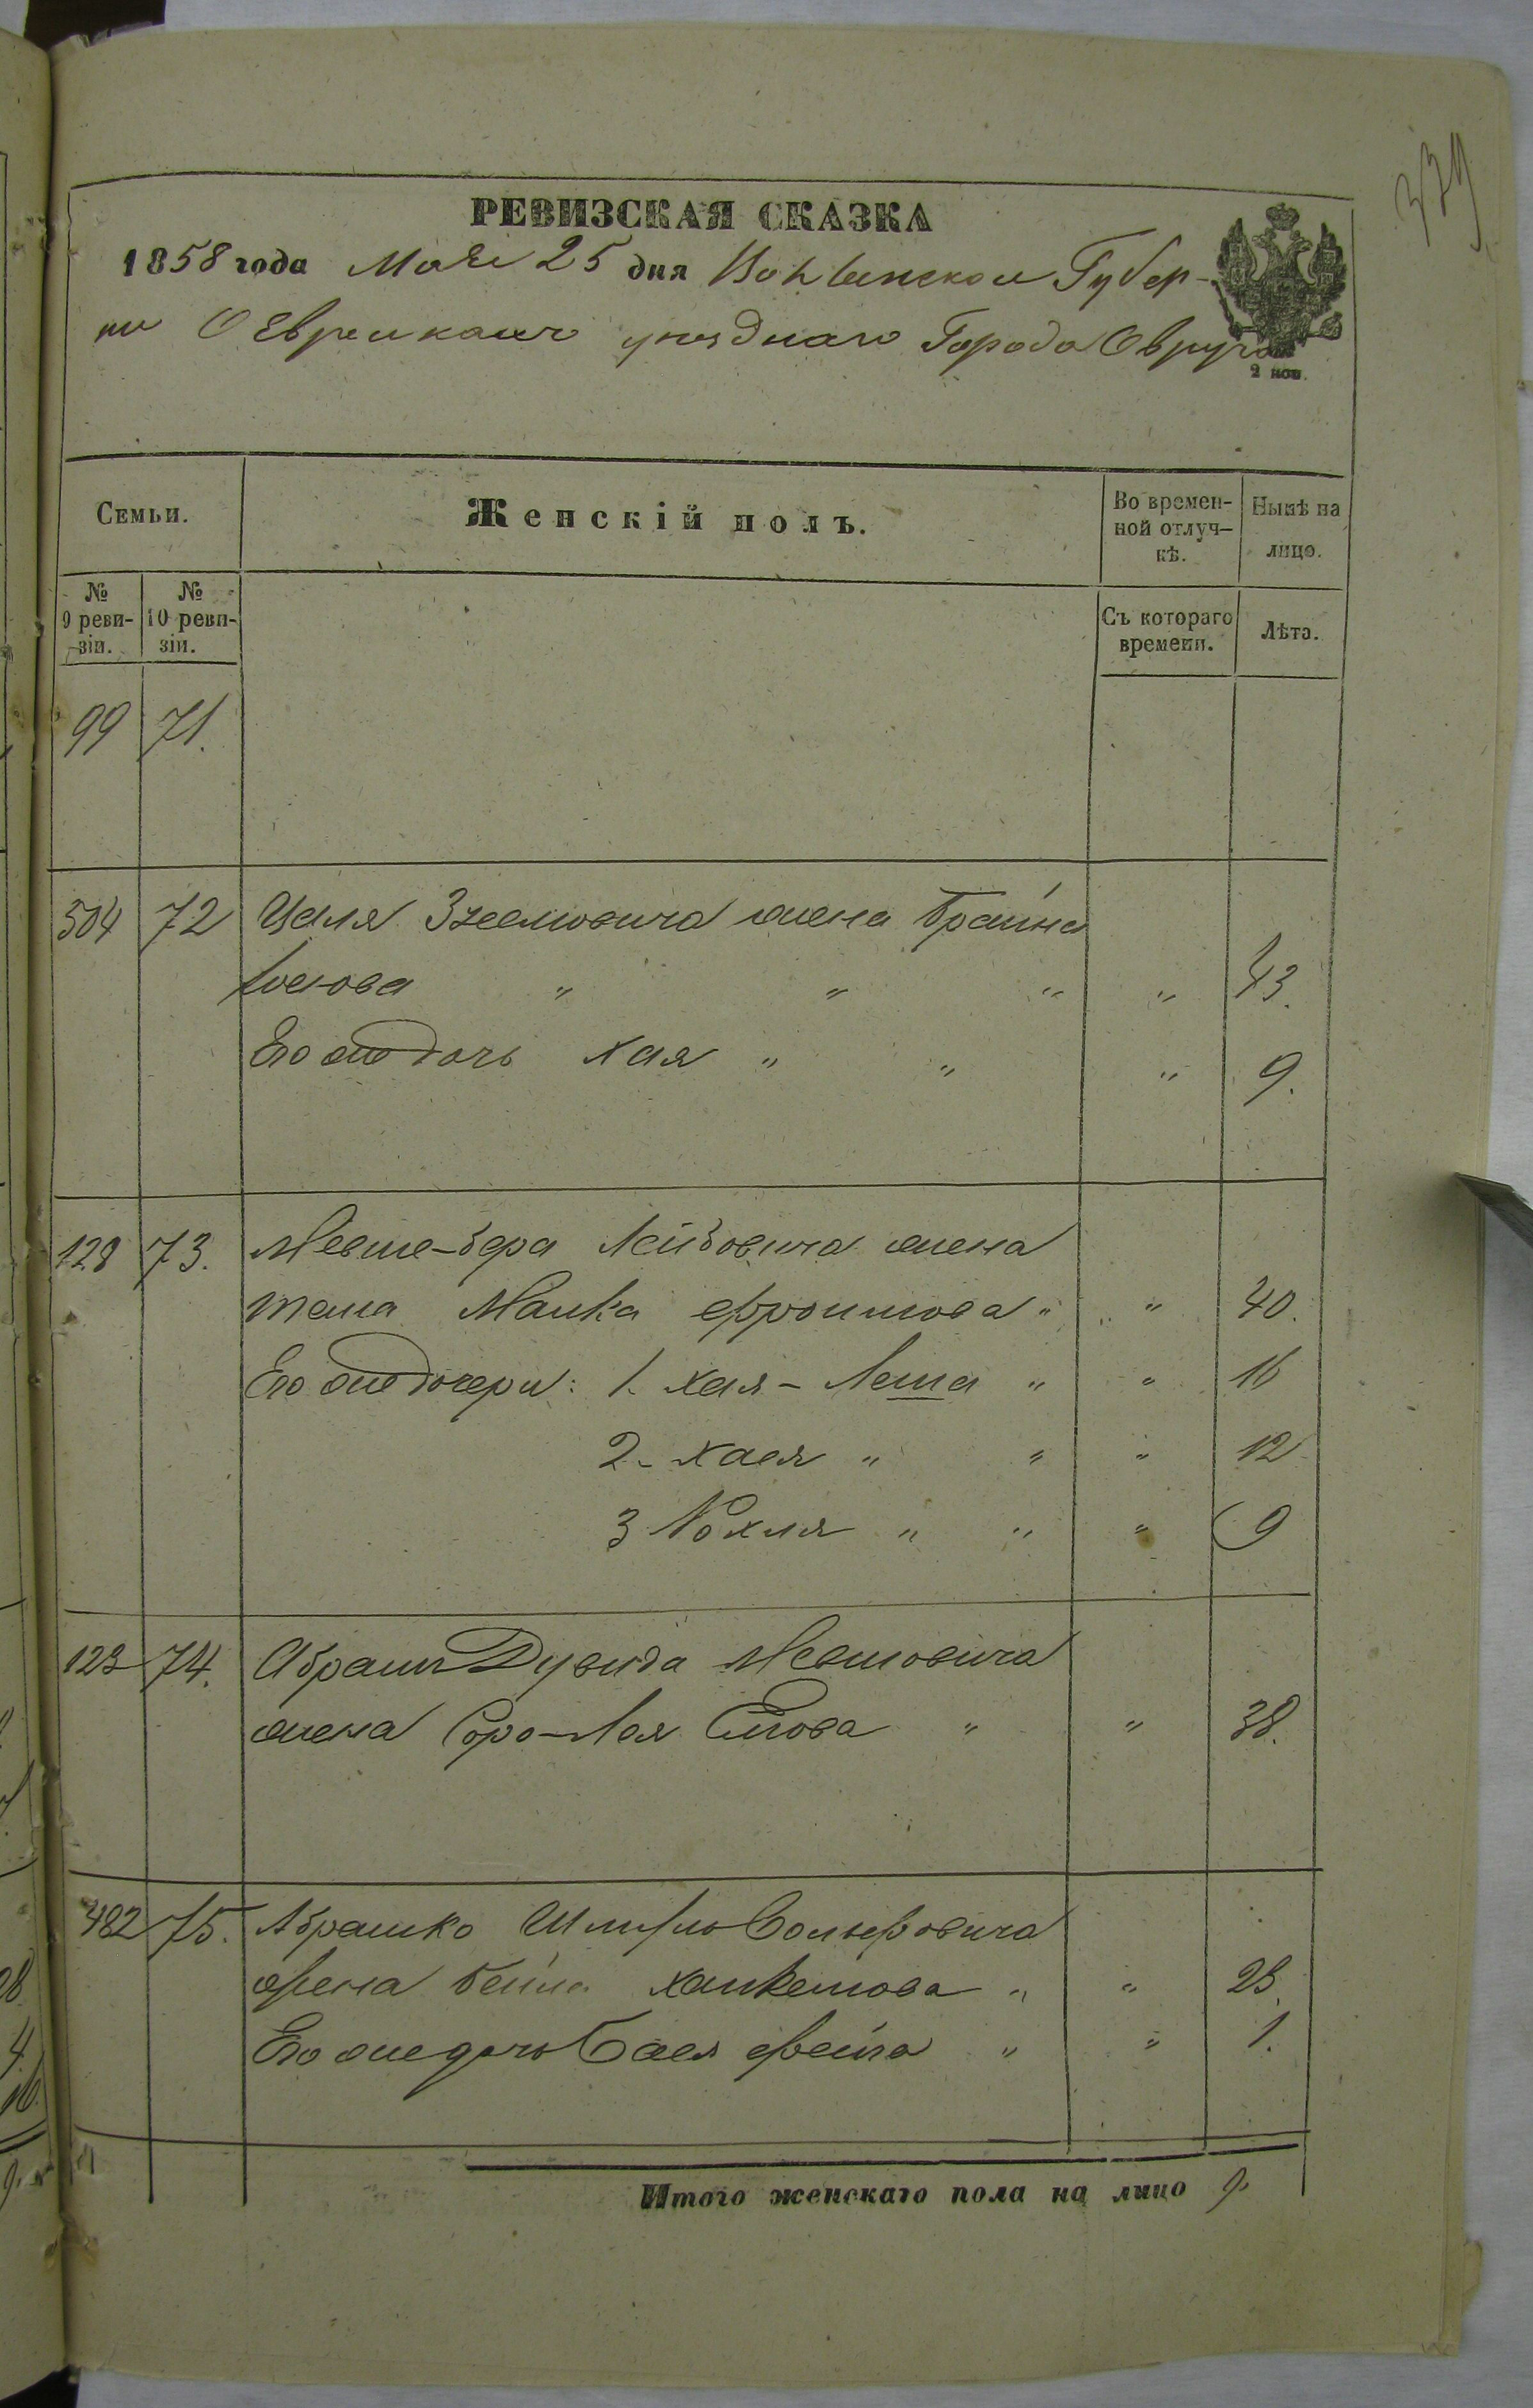 339
РЕВИЗСКАЯ СКАЗКА
1858 года Мая 25 дня Волынской Губер-
нии О Евреикахъ уезднаго Города Овруча
2 коп.
Семьи.
Женскій полъ.
Во времен-
ной отлуч-
кѣ.
Нынѣ на
лицо.
№
9 реви-
зіи.
№
10 реви-
зіи.
Съ котораго
времени.
Лѣта.
99 71.
504 72 Целя Зуселовича жена Брайна
" " " " 43.
Его же дочь Хая " " " 9.
128 73. Мевше-бера Лейбовича жена
Малка ефроимова " " 40.
Его же дочери: 1. Хая - " " 16
2. Хася " " " 12
3 Рохля " " " 9
123 74. Абрамъ Дувида Мевшовича
жена Соро-Лея " " 38.
482 75. Абрашко Вольфовича
жена бейла " " 28.
Его же дочь Бася фейга " " 1.
Итого женскаго пола на лицо 9.